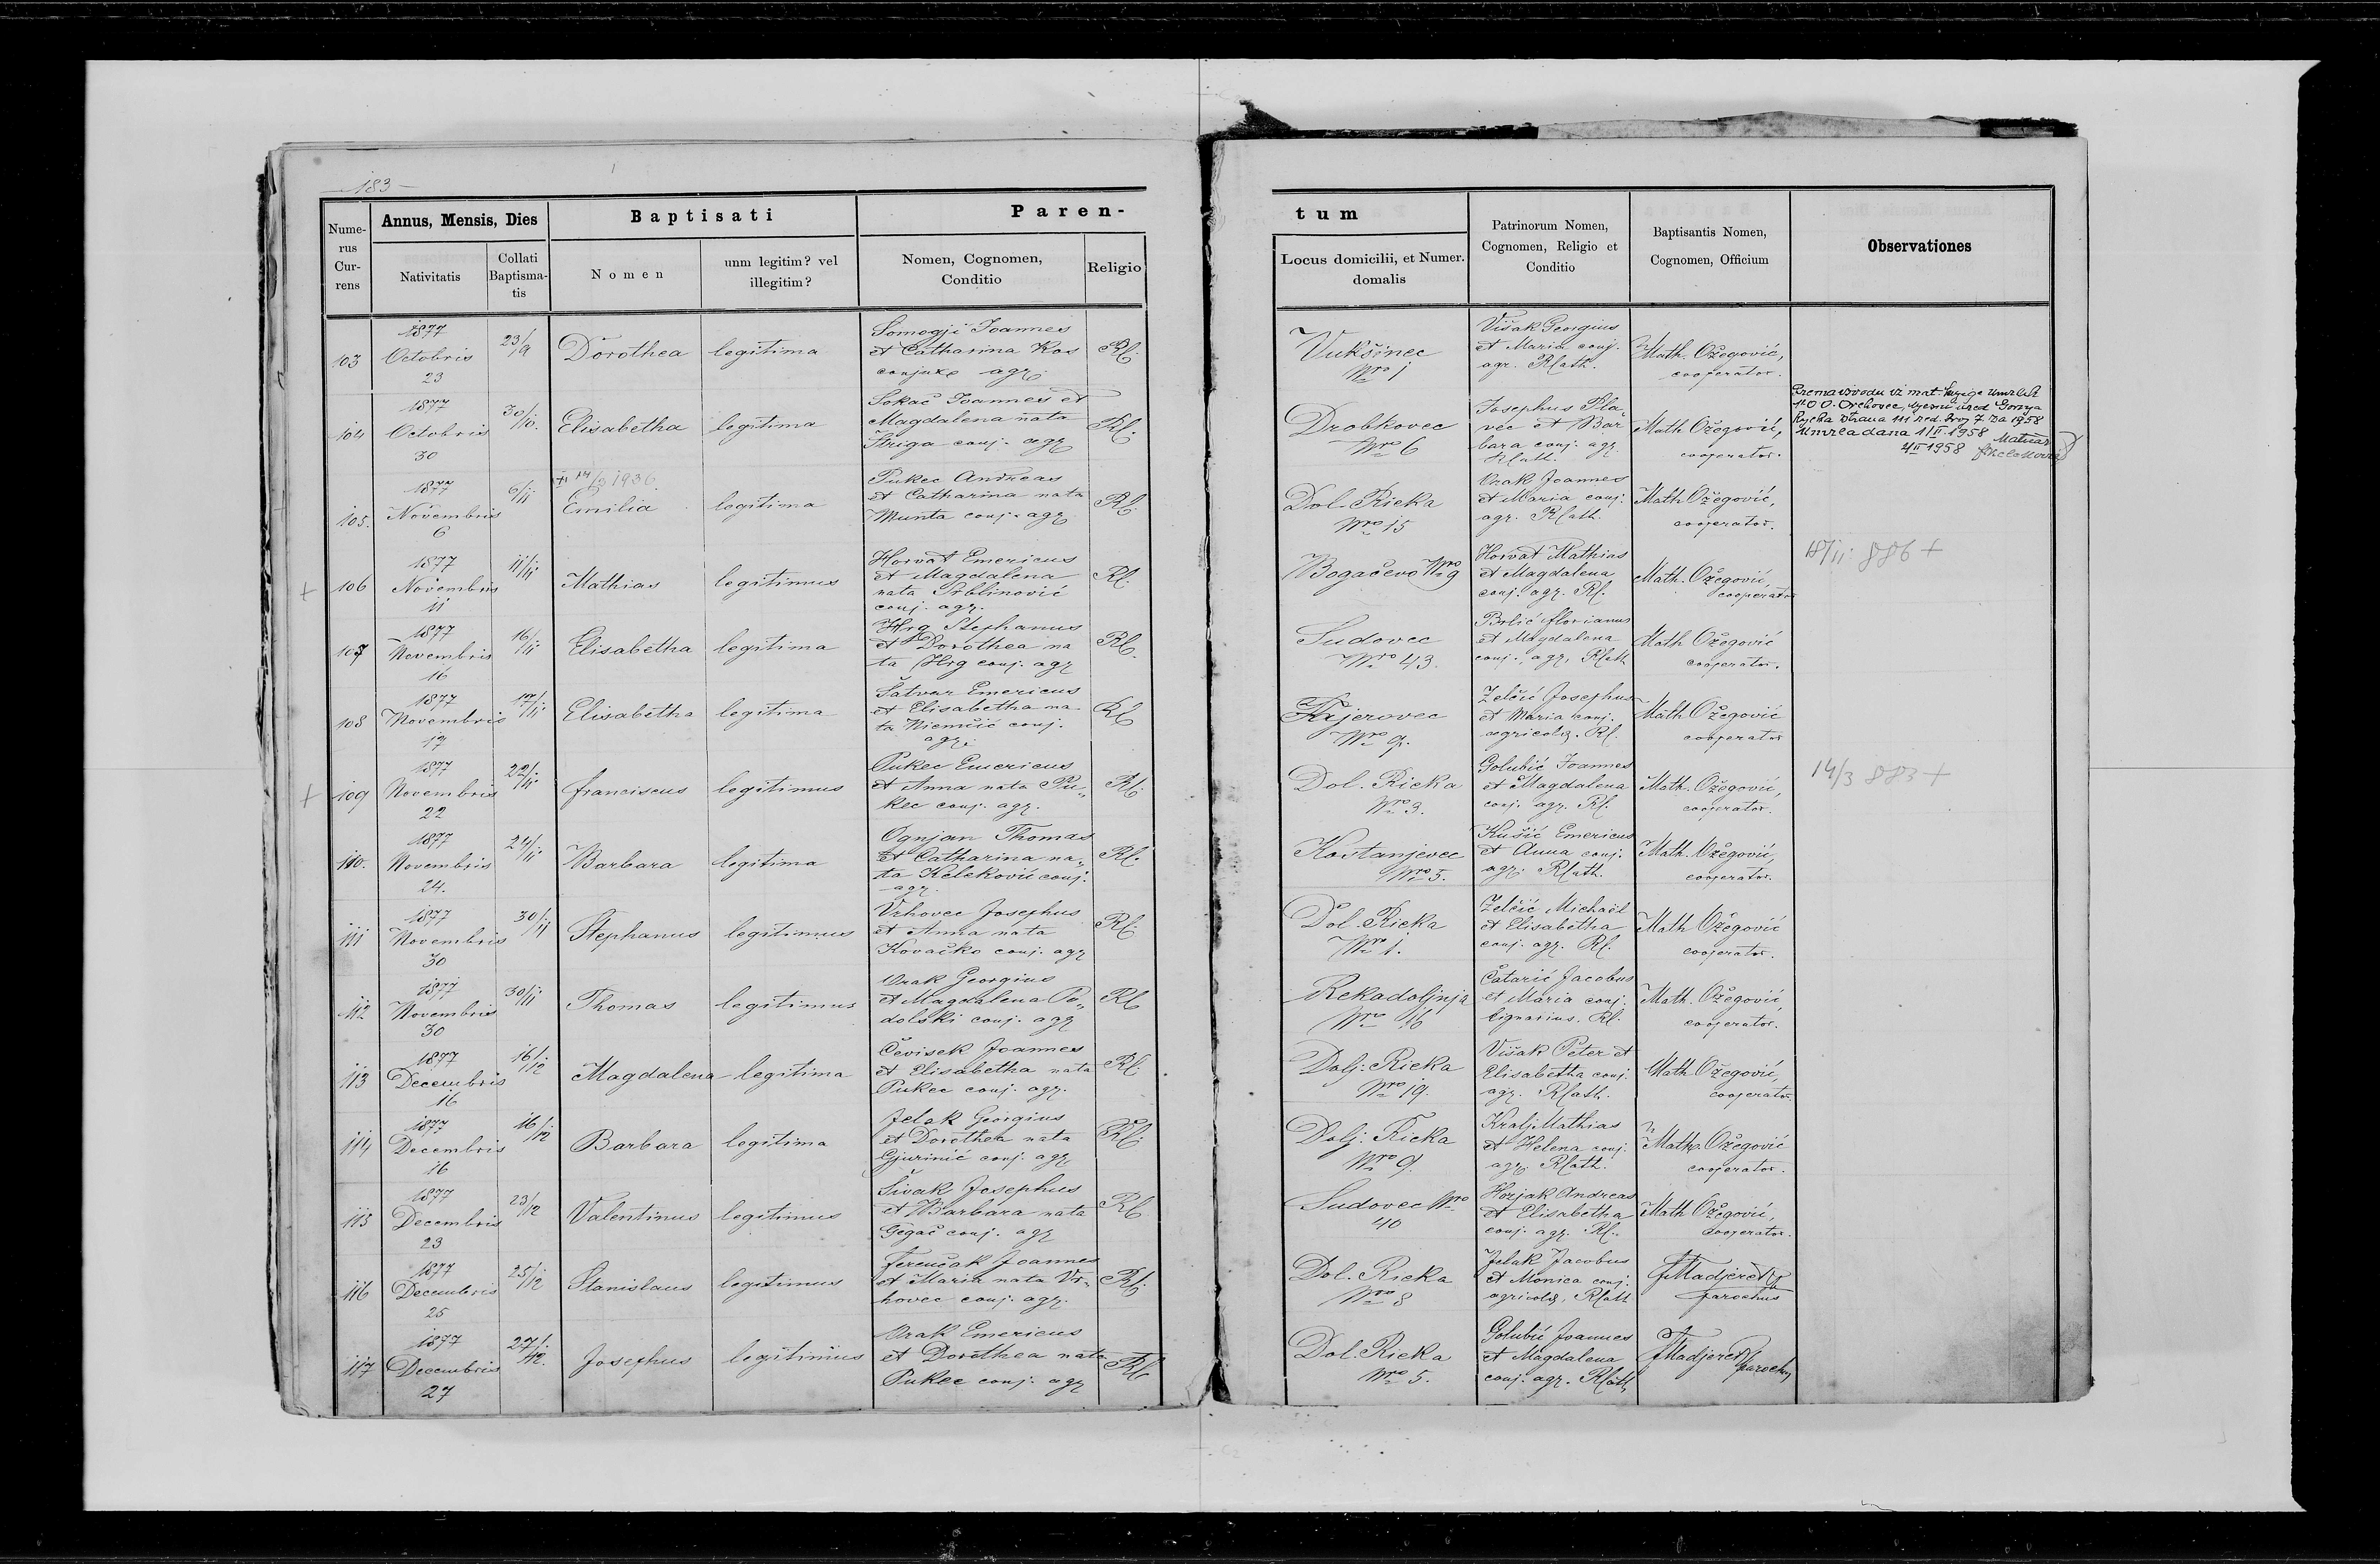 183
Nume-
rus
Cur-
rens
Annus, Mensis, Dies
Nativitatis
Collati
Baptisma-
tis
Baptisati
Nomen
unm legitim? vel
illegitim?
Paren-
Nomen, Cognomen,
Conditio
Religio
tum
Locus domicilii, et Numer.
domalis
Patrinorum Nomen,
Cognomen, Religio et
Conditio
Baptisantis Nomen,
Cognomen, Officium
Observationes
103
1877
Octobris
23
Dorothea
legitima
Somogji Joannes
et Catharina Kos
agr.
Rl.
Vukšinec
Nro 1
Višak Georgius
et Maria conj.
agr. Rlath.
Math. Ožegović,
cooperator.
104
1877
Octobris
30
30/10.
Elisabetha
legitima
Sokač Joannes et
Magdalena nata
Striga conj. agr
Rl.
Drobkovec
Nro 6
Josephus Pla-
vec et Bar
bara conj. agr
Rlath.
Math Ožegović,
cooperator.
Prema izvodu iz mat. knjige umrlih
N.O.O. Orehovec, Gornja
Rijeka strana 111 red. broj 7 za 1958
Umrla dana 1/II 1958 Matičar
4/II 1958
105.
1877
Novembris
6
6/11
1936
Emilia
legitima
Pukec Andreas
et Catharina nata
Munta conj. agr
Rl.
Dol. Rieka
Nro 15
Joannes
et Maria conj.
agr. Rlath.
Math Ožegović,
cooperator.
+
106
1877
Novembris
11
11/11
Mathias
legitimus
Horvat Emericus
et Magdalena
nata Srblinović
conj. agr.
Rl.
Bogačevo Nro 9
Horvat Mathias
et Magdalena
conj. agr. Rl.
Math. Ožegović,
cooperator
18/11 886 +
107
1877
Novembris
16
16/11
Elisabetha
legitima
Hrg Stephanus
et Dorothea na
ta Hrg conj. agr
Rl.
Sudovec
Nro 43.
Brlić florianus
et Magdalena
conj. agr. Rlath
Math Ožegović
cooperator.
108
1877
Novembris
17
17/11
Elisabetha
legitima
Šatvar Emericus
et Elisabetha na
ta Niemčić conj.
agr.
Rl
Fajerovec
Nro 9.
Zelčić Josephus
et Maria conj.
agricolæ. Rl.
Math Ožegović
cooperator
+
109
1877
Novembris
22
22/11
franciscus
legitimus
Pukec Emericus
et Anna nata Pu-
kec conj. agr.
Rl.
Dol. Rieka
Nro 3.
Golubić Joannes
et Magdalena
conj. agr. Rl.
Math. Ožegović,
cooperator.
14/3 883 +
110.
1877
Novembris
24.
24/11
Barbara
legitima
Ognjan Thomas
et Catharina na-
ta Keleković conj.
agr.
Rl.
Kostanjevec
Nro 5.
Kušić Emericus
et Anna conj.
agr. Rlath.
Math. Ožegović,
cooperator.
111
1877
Novembris
30
30/11
Stephanus
legitimus
Vrhovec Josephus
et Anna nata
Kovačko conj. agr
Rl.
Dol. Rieka
Nro 1.
Zelčić Michaël
et Elisabetha
conj. agr. Rl.
Math Ožegović
cooperator.
112
1877
Novembris
30
30/11
Thomas
legitimus
Georgius
et Magdalena Po-
dolski conj. agr
Rl
Rekadoljnja
Nro 16
Čatarić Jacobus
et Maria conj.
lignarius. Rl.
Math. Ožegović
cooperator.
113
1877
Decembris
16
16/12
Magdalena
legitima
Čevisek Joannes
et Elisabetha nata
Pukec conj. agr.
Rl.
Dolj. Rieka
Nro 19.
Višak Peter et
Elisabetha conj.
agr. Rlath.
Math Ožegović,
cooperator.
114
1877
Decembris
16
16/12
Barbara
legitima
Jelak Georgius
et Dorothea nata
Gjurinić conj. agr
Rl.
Dolj. Rieka
Nro 9.
Kralj Mathias
et Helena conj.
agr. Rlath.
Math. Ožegović
cooperator.
115
1877
Decembris
23
23/12
Valentinus
legitimus
Sivak Josephus
et Barbara nata
Gegač conj. agr
Rl
Sudovec Nro
40
Horjak Andreas
et Elisabetha
conj. agr. Rl.
Math Ožegović,
cooperator.
116
1877
Decembris
25
25/12
Stanislaus
legitimus
Ferenčak Joannes
et Maria nata Vr-
hovec conj. agr.
Rl.
Dol. Rieka
Nro 8
Jelak Jacobus
et Monica conj.
agricolæ, Rlath
parochus
117
1877
Decembris
27
27/12.
Josephus
legitimus
Emericus
et Dorothea nata
Pukec conj. agr
Rl.
Dol. Rieka
Nro 5.
Golubić Joannes
et Magdalena
conj. agr. Rlath